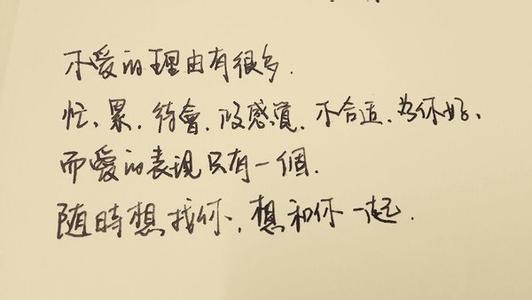 不愛的理由有很多.
忙、累.待會.沒感覺.不合適.為你好、
而愛的表現只有一個.
隨時想找你,想和你一起.